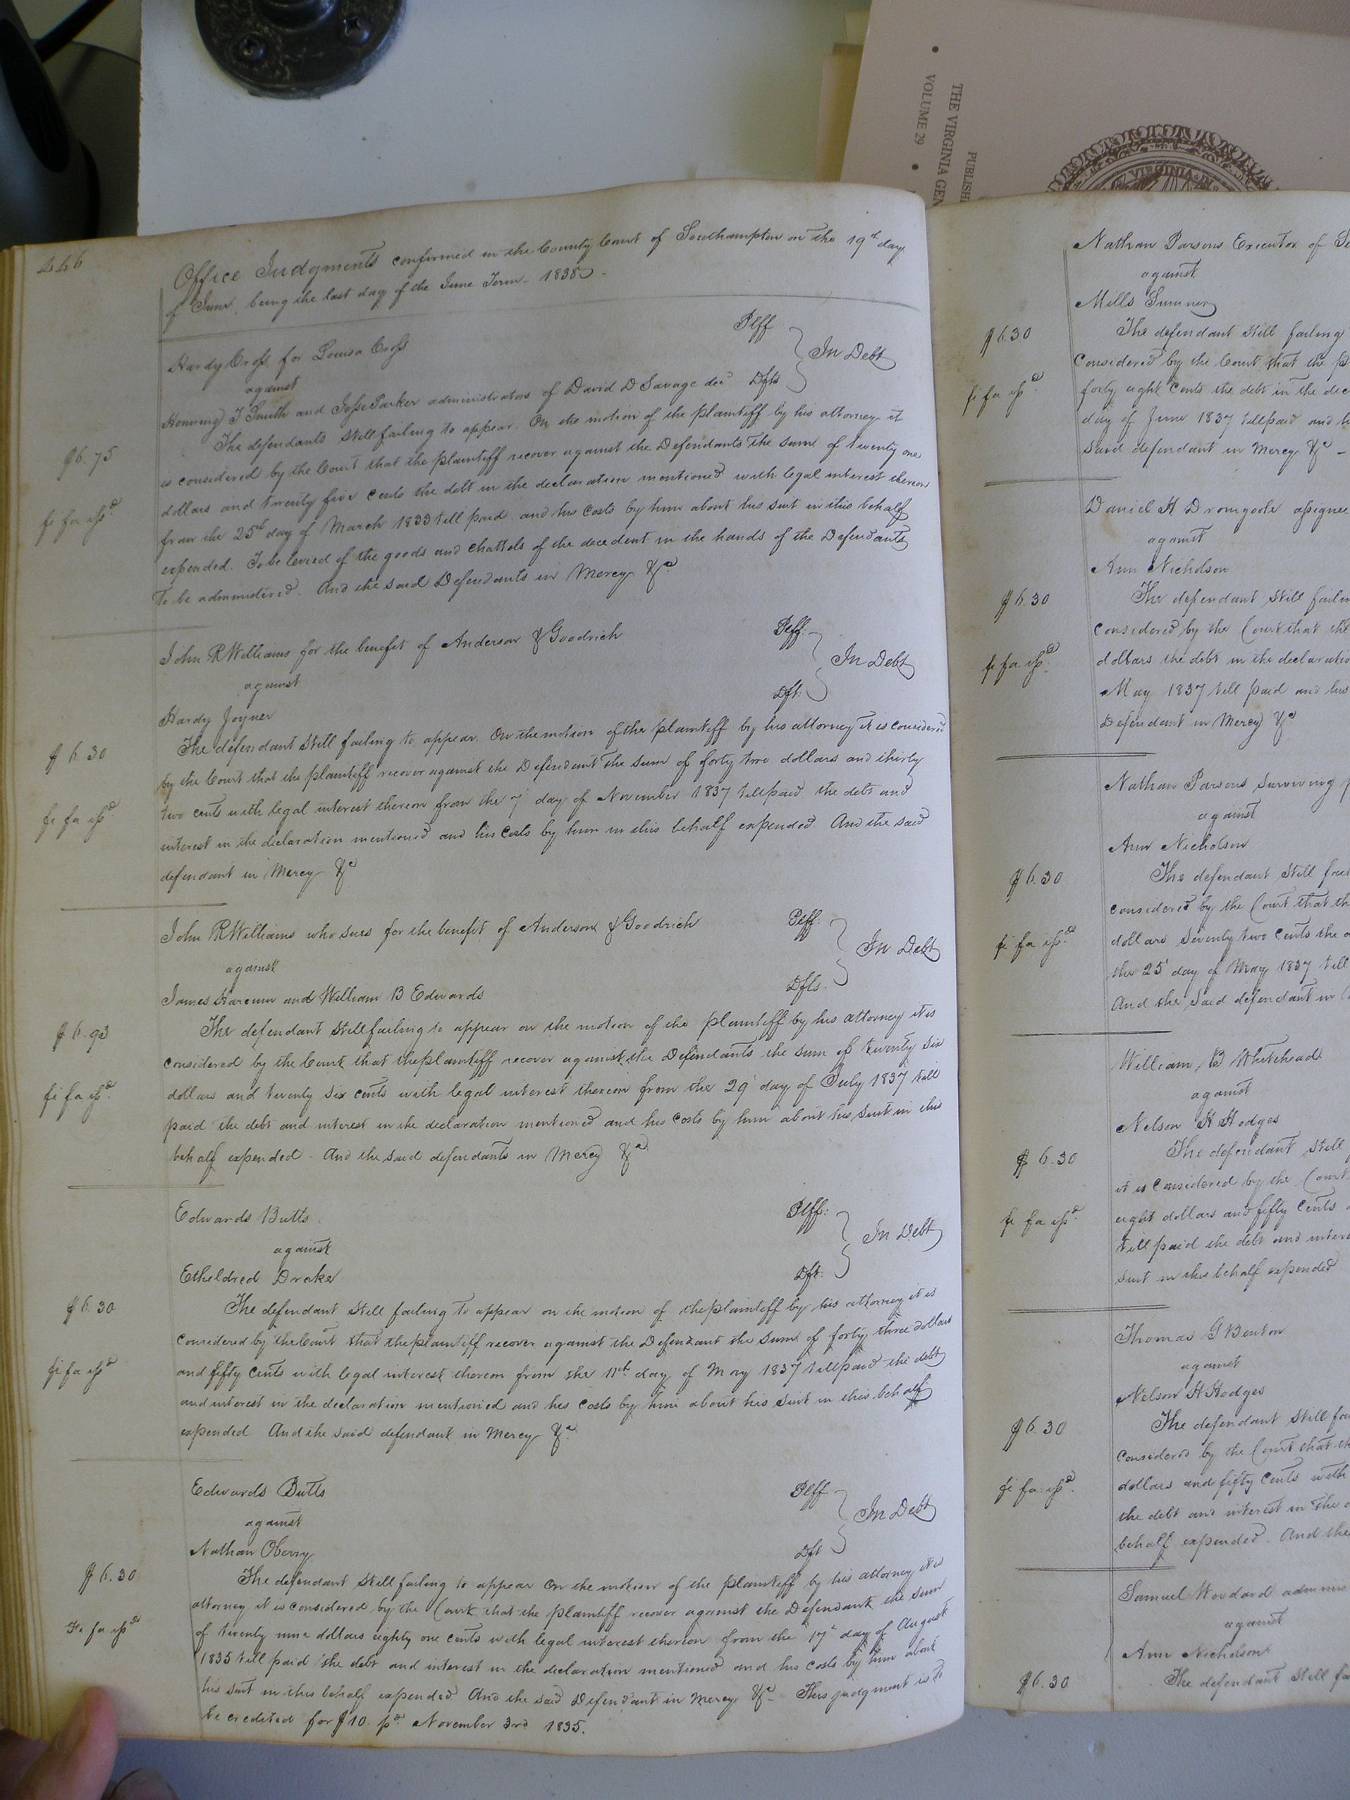 THE VIRGINIA GEN
VOLUME 29
PUBLISH
VIRGINIA
446
Office Judgments confirmed in the County Court of Southampton on the 19th day
of June being the last day of the June Term 1838
Hardy Cross for Louisa Cross Plff
against In Debt
Henning T Smith and Jesse Parker administrators of David D Savage decd Dfts
The defendants still failing to appear. On the motion of the plaintiff by his attorney it
$6.75
is considered by the Court that the plaintiff recover against the Defendants the sum of twenty one
dollars and twenty five cents the debt in the declaration mentioned with legal interest thereon
fi fa issd
from the 25th day of March 1833 till paid and his costs by him about his suit in this behalf
expended. To be levied of the goods and chattels of the decedent in the hands of the Defendants
to be administered. And the said Defendants in Mercy &c
John R Williams for the benefit of Anderson & Goodrich Plff.
against In Debt
Hardy Joyner Dft.
The defendant still failing to appear. On the motion of the plaintiff by his attorney it is considered
$6.30
by the Court that the plaintiff recover against the Defendant the sum of forty two dollars and thirty
two cents with legal interest thereon from the 7 day of November 1837 till paid the debt and
fi fa issd
interest in the declaration mentioned and his costs by him in this behalf expended. And the said
defendant in Mercy &c
John R Williams who sues for the benefit of Anderson & Goodrich Plff.
against In Debt
James and William B Edwards Dfts.
The defendant still failing to appear on the motion of the plaintiff by his attorney it is
$6.93
considered by the Court that the plaintiff recover against the Defendants the sum of twenty six
dollars and twenty six cents with legal interest thereon from the 29 day of July 1837 till
fi fa issd
paid the debt and interest in the declaration mentioned and his costs by him about his suit in this
behalf expended. And the said defendants in Mercy &c
Edwards Butts Plff.
against In Debt
Etheldred Drake Dft.
The defendant still failing to appear on the motion of the plaintiff by his attorney it is
$6.30
considered by the Court that the plaintiff recover against the Defendant the sum of forty three dollars
and fifty cents with legal interest thereon from the 11th day of May 1837 till paid the debt
fi fa issd
and interest in the declaration mentioned and his costs by him about his suit in this behalf
expended And the said defendant in Mercy &c
Edwards Butts Plff
against In Debt
Nathan Oberry Dft
The defendant still failing to appear On the motion of the plaintiff by his attorney it is
$6.30
attorney it is considered by the Court that the plaintiff recover against the Defendant the sum
of twenty nine dollars eighty one cents with legal interest thereon from the 17th day of August
Fi fa issd
1835 till paid the debt and interest in the declaration mentioned and his costs by him about
his suit in this behalf expended And the said Defendant in Mercy &c This judgment is to
be credited for $10. pd. November 3rd 1835.
Nathan Parsons Executor of
against
Mills Sumner
The defendant still failing
$6.30
considered by the Court that the
forty eight cents the debt in the dec
fi fa issd
day of June 1837 till paid and
said defendant in Mercy &c
Daniel H Dromgoole assignee
against
Ann Nicholson
The defendant still failin
$6.30
considered by the Court that the
dollars the debt in the declaratio
fi fa issd
May 1837 till paid and his
Defendant in Mercy &c
Nathan Parsons Surviving
against
Ann Nicholson
The defendant still fai
$6.30
considered by the Court that th
dollars seventy two cents the
fi fa issd
the 25 day of May 1837 till
And the said defendant in
William B Whitehead
against
Nelson H Hodges
The defendant still
$6.30
it is considered by the Court
eight dollars and fifty cents
fi fa issd
till paid the debt and inter
suit in this behalf expended
Thomas G Benton
against
Nelson H Hodges
The defendant still fa
$6.30
considered by the Court that th
dollars and fifty cents with
fi fa issd
the debt and interest in the
behalf expended. And the
Samuel Woodard adminis
against
Ann Nicholson
The defendant still fa
$6.30